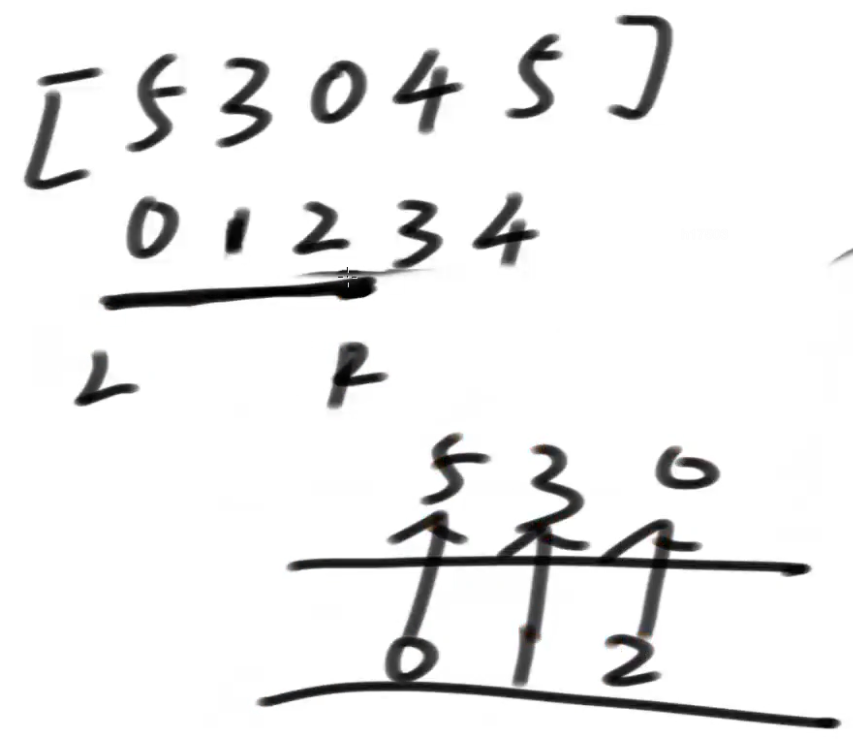 [ 5 3 0 4 5 ]
0 1 2 3 4
L R
5 3 0
0 1 2